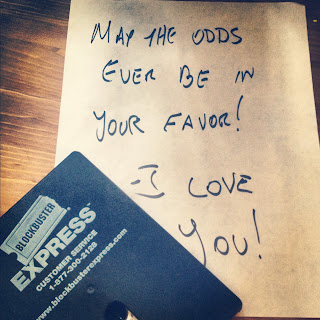 MAY THE ODDS
EVER BE IN
YOUR FAVOR!
-I LOVE
YOU!
BLOCKBUSTER
EXPRESS™
CUSTOMER SERVICE
1-877-300-2128
www.blockbusterexpress.com